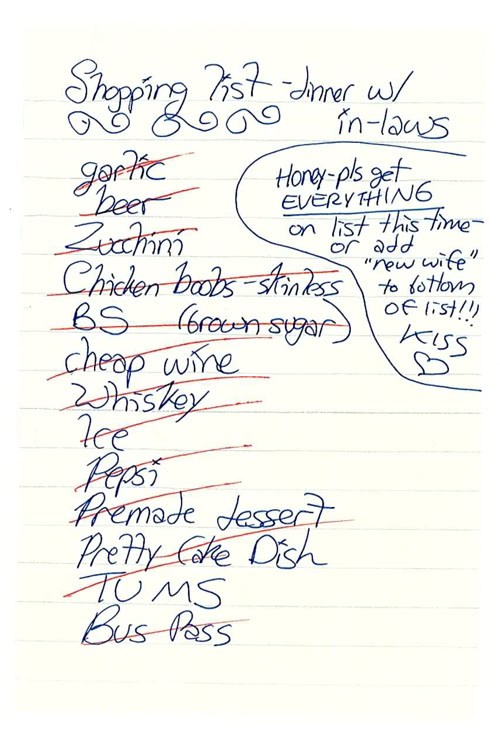 Shopping list - dinner w/
in-laws
garlic
beer
Zucchini
Chicken boobs - skinless
BS (brown sugar)
cheap wine
Whiskey
Ice
Pepsi
Premade dessert
Pretty Cake Dish
TUMS
Bus Pass
Honey - pls get
EVERYTHING
on list this time -
or add
"new wife"
to bottom
of list!!!
KISS